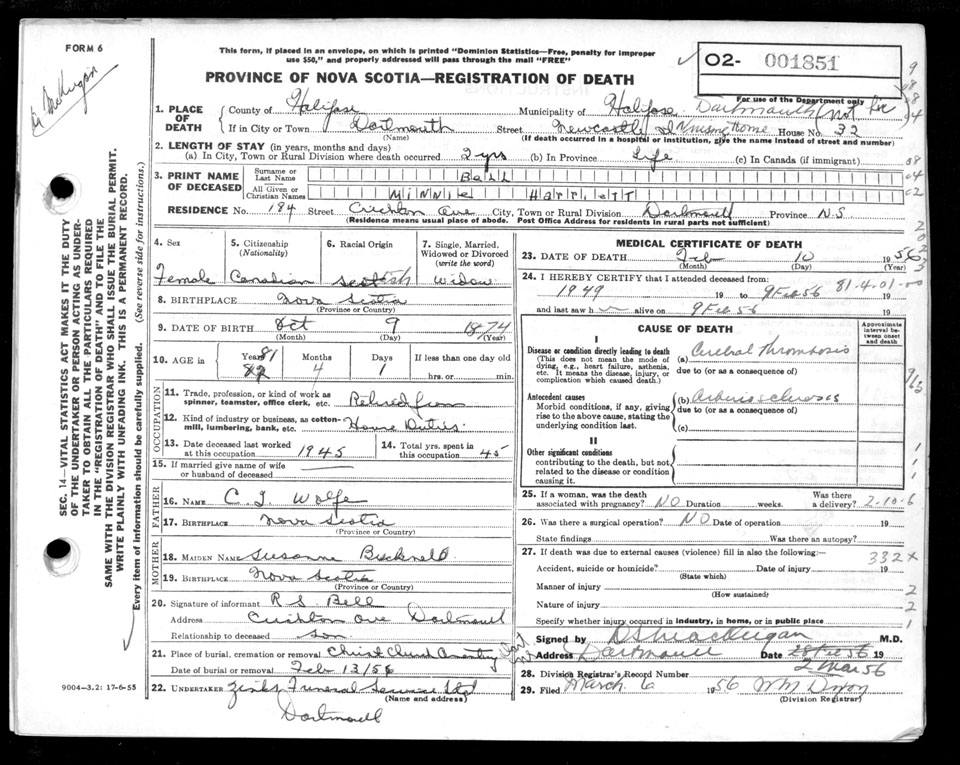 FORM 6
This form, if placed in an envelope, on which is printed "Dominion Statistics—Free, penalty for improper
use $50," and properly addressed will pass through the mail "FREE"
PROVINCE OF NOVA SCOTIA—REGISTRATION OF DEATH
O2- 001851
For use of the Department only
1. PLACE OF DEATH County of Halifax Municipality of Halifax Dartmouth
If in City or Town Dartmouth Street Newcastle Nursing Home House No. 32
(Name) (If death occurred in a hospital or institution, give the name instead of street and number)
2. LENGTH OF STAY (in years, months and days)
(a) In City, Town or Rural Division where death occurred 2 yrs (b) In Province Life (c) In Canada (if immigrant)
3. PRINT NAME OF DECEASED Surname or Last Name Bell
All Given or Christian Names MINNIE HARRIETT
RESIDENCE No. 194 Street Crichton Ave City, Town or Rural Division Dartmouth Province N.S
(Residence means usual place of abode. Post Office Address for residents in rural parts not sufficient)
4. Sex 5. Citizenship (Nationality) 6. Racial Origin 7. Single, Married, Widowed or Divorced (write the word)
Female Canadian Scottish Widow
8. BIRTHPLACE Nova Scotia
(Province or Country)
9. DATE OF BIRTH Oct 9 1874
(Month) (Day) (Year)
10. AGE in Years Months Days If less than one day old
81 4 1 hrs. or min.
OCCUPATION
11. Trade, profession, or kind of work as spinner, teamster, office clerk, etc. Retired from
12. Kind of industry or business, as cotton-mill, lumbering, bank, etc. House Duties
13. Date deceased last worked at this occupation 1945 14. Total yrs. spent in this occupation 45
15. If married give name of wife or husband of deceased
FATHER
16. NAME C. J. Wolfe
17. BIRTHPLACE Nova Scotia
(Province or Country)
MOTHER
18. MAIDEN NAME Susanne Bucknell
19. BIRTHPLACE Nova Scotia
(Province or Country)
20. Signature of informant R S Bell
Address Crichton Ave Dartmouth
Relationship to deceased son
21. Place of burial, cremation or removal Christ Church Cemetery
Date of burial or removal Feb 13/56
22. UNDERTAKER Zinks Funeral Service Ltd
(Name and address)
Dartmouth
MEDICAL CERTIFICATE OF DEATH
23. DATE OF DEATH Feb 10 1956
(Month) (Day) (Year)
24. I HEREBY CERTIFY that I attended deceased from:
1949 19 to 9 Feb 56 19
81.4.01.00
and last saw h alive on 9 Feb 56 19
CAUSE OF DEATH
Approximate interval between onset and death
I
Disease or condition directly leading to death (a) Cerebral thrombosis
(This does not mean the mode of dying, e.g., heart failure, asthenia, etc. It means the disease, injury, or complication which caused death.) due to (or as a consequence of)
Antecedent causes (b) Arteriosclerosis
Morbid conditions, if any, giving rise to the above cause, stating the underlying condition last. due to (or as a consequence of)
(c)
II
Other significant conditions
contributing to the death, but not related to the disease or condition causing it.
25. If a woman, was the death associated with pregnancy? NO Duration weeks. Was there a delivery?
2-10-6
26. Was there a surgical operation? NO Date of operation 19
State findings Was there an autopsy?
27. If death was due to external causes (violence) fill in also the following:—
332X
Accident, suicide or homicide? Date of injury 19
(State which)
Manner of injury
(How sustained)
Nature of injury
Specify whether injury occurred in industry, in home, or in public place
Signed by D S MacKeigan M.D.
Address Dartmouth Date 28 Feb 56
2 Mar 56
28. Division Registrar's Record Number
29. Filed March 6 1956 W M Dixon
(Division Registrar)
SEC. 14—VITAL STATISTICS ACT MAKES IT THE DUTY
OF THE UNDERTAKER OR PERSON ACTING AS UNDER-
TAKER TO OBTAIN ALL THE PARTICULARS REQUIRED
IN THE "REGISTRATION OF DEATH" AND TO FILE THE
SAME WITH THE DIVISION REGISTRAR WHO SHALL ISSUE THE BURIAL PERMIT.
WRITE PLAINLY WITH UNFADING INK. THIS IS A PERMANENT RECORD.
Every item of information should be carefully supplied. (See reverse side for instructions.)
9004—3.2: 17-6-55